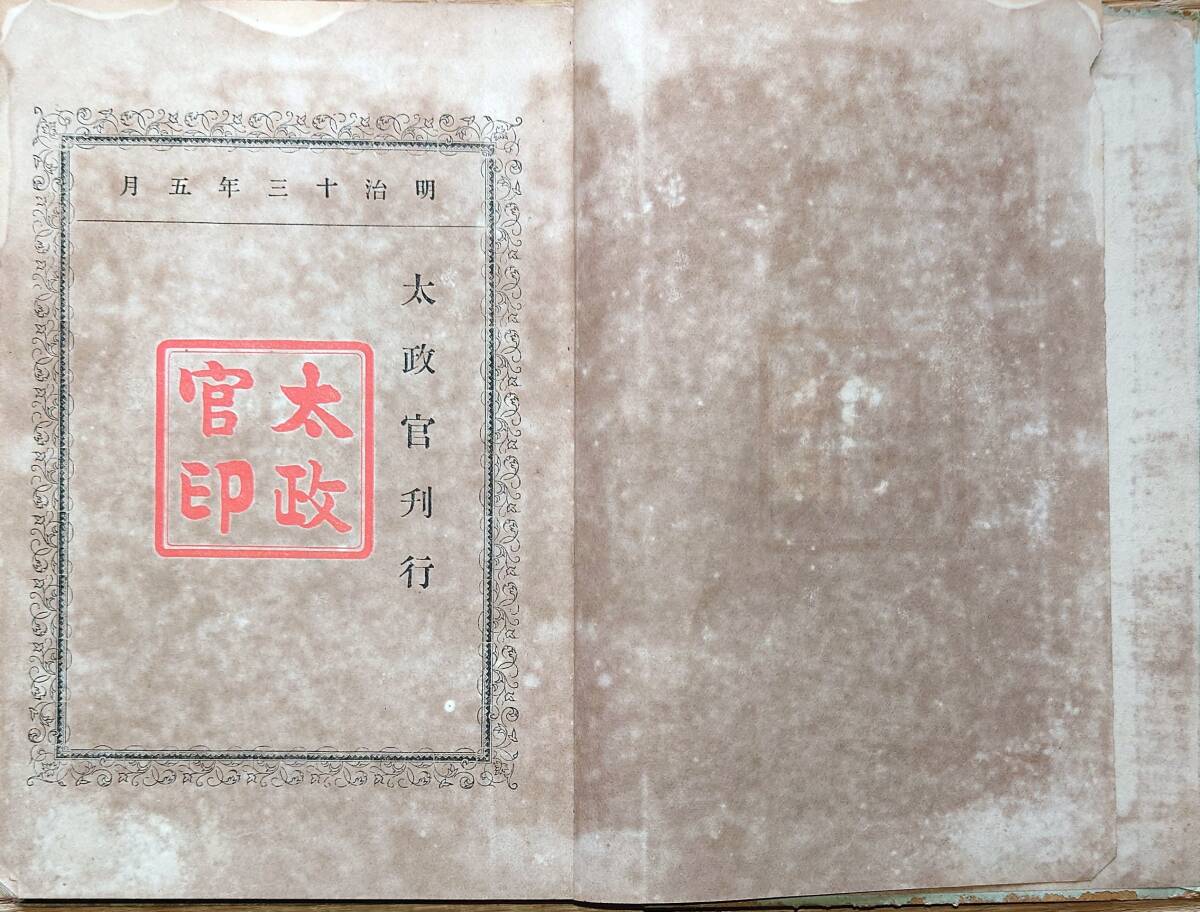 明治十三年五月
太政官刋行
太政
官印